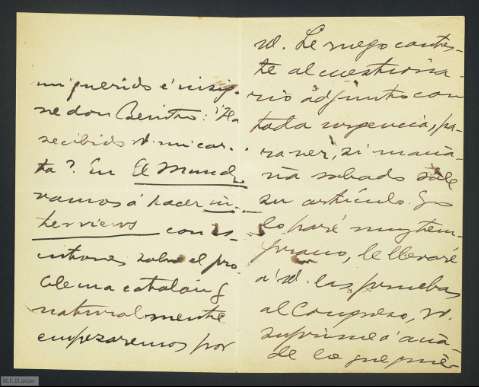 mi querido é insig-
ne don Benito: ¿Ha
recibido V. mi car-
ta? En El Mundo
vamos á hacer in-
terviews con es-
critores sobre el pro-
blema catalan y
naturalmente
empezaremos por
Vd. Le ruego contes-
te al cuestiona-
rio adjunto con
toda urgencia, pa-
ra ver si maña-
na sabado sale
su artículo. Yo
lo haré muy tem-
prano, le llevaré
á Vd. las pruebas
al Congreso, Vd.
suprime ó aña-
de lo que quier